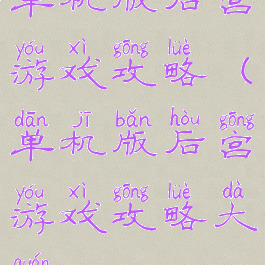 单机版后宫
yóu xì gōng lüè
游戏攻略（
dān jī bǎn hòu gōng
单机版后宫
yóu xì gōng lüè dà
游戏攻略大
quán